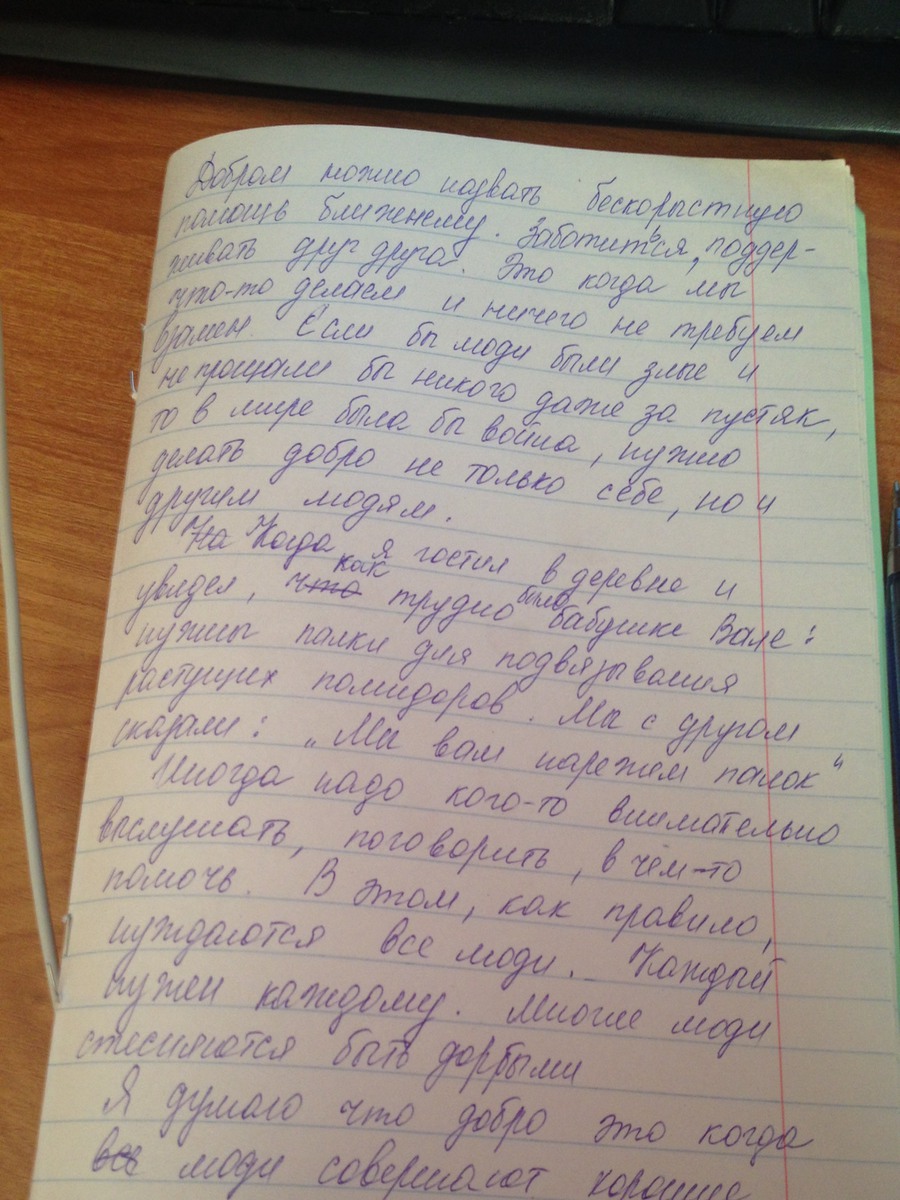 Добром можно назвать бескорыстную
помощь ближенему. Заботиться, поддер-
живать друг друга. Это когда мы
что-то делаем и ничего не требуем
взамен. Если бы люди были злые и
не прощали бы никого даже за пустяк,
то в мире была бы война, нужно
делать добро не только себе, но и
другим людям.
На Когда я гостил в деревне и
увидел, что как трудно было бабушке Вале:
нужны палки для подвязывания
растущих помидоров. Мы с другом
сказали: „Мы вам нарежем палок“
Иногда надо кого-то внимательно
выслушать, поговорить, в чём-то
помочь. В этом, как правило,
нуждаются все люди. Каждый
нужен каждому. Многие люди
стесняются быть дорбыми
Я думаю что добро это когда
все люди совершают хорошие